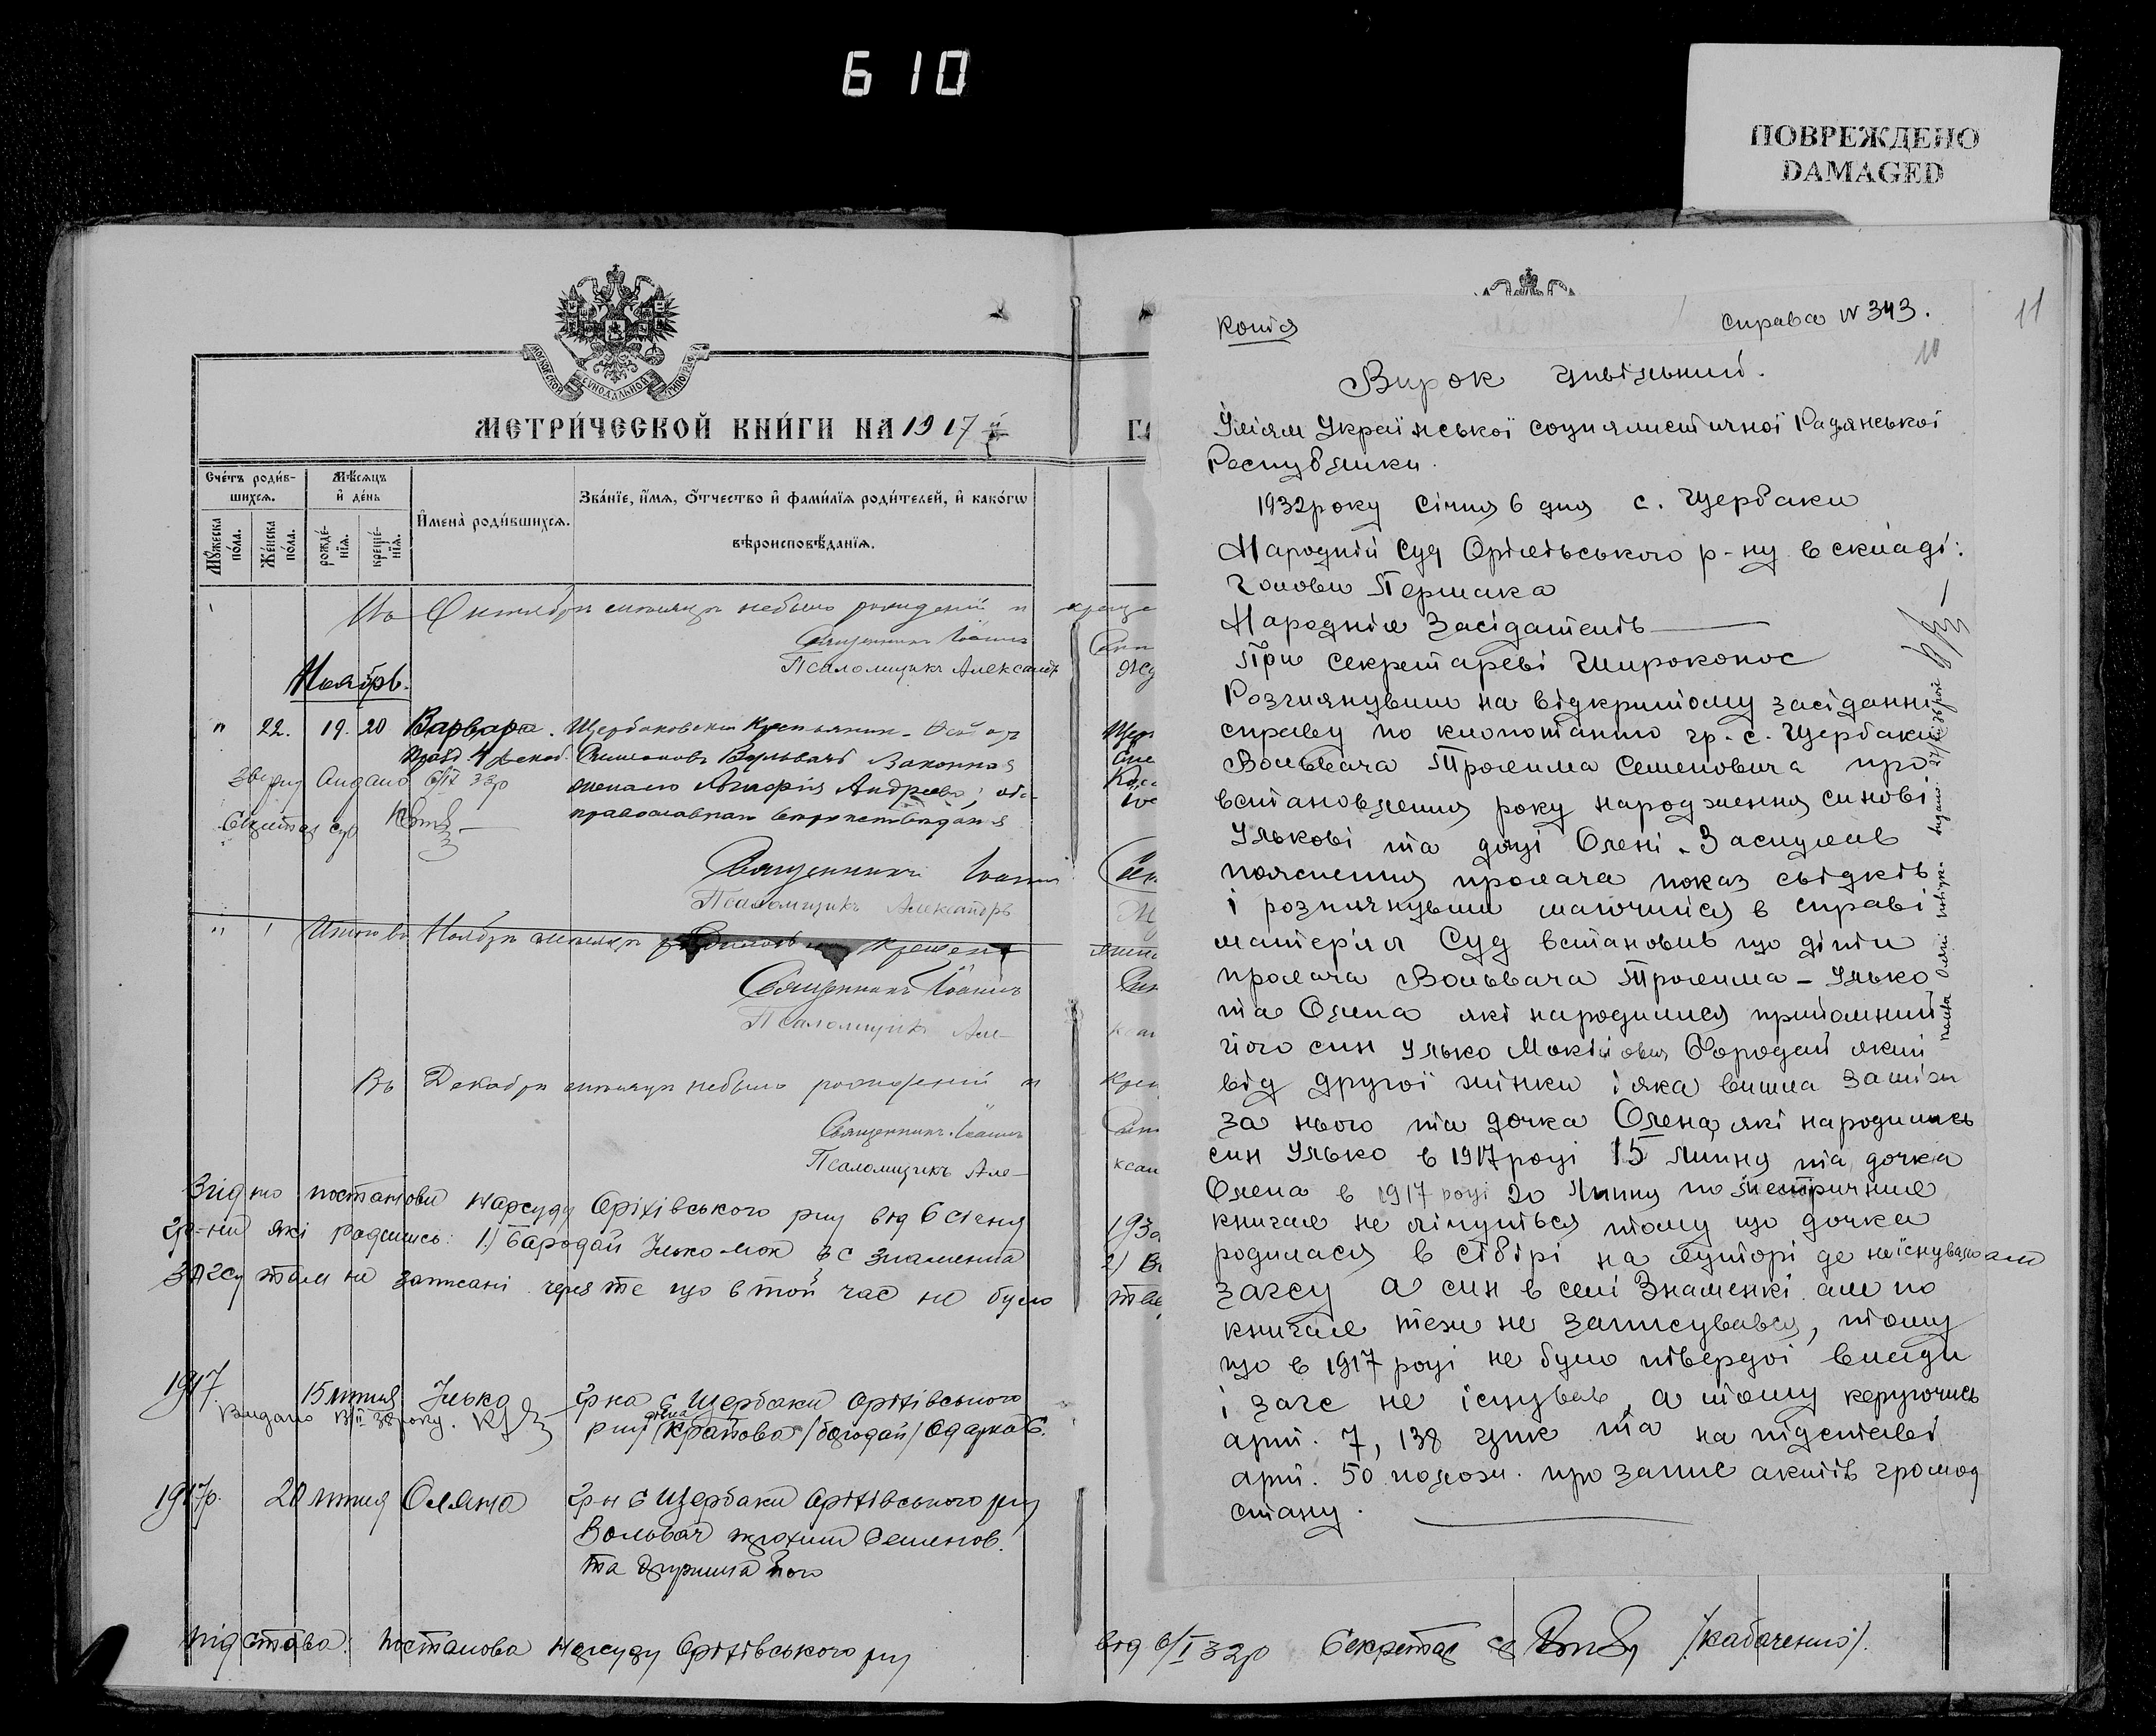 610
ПОВРЕЖДЕНО
DAMAGED
МОСКОВСКОЙ СѴНОДАЛЬНОЙ ТИПОГРАФ
МЕТРИ́ЧЕСКОЙ КНИ́ГИ НА 1917 й
Счетъ роди́в-
шихсѧ.
Мѣ́сѧцъ
и҆ де́нь
Мꙋ́жеска по́ла.
Же́нска по́ла.
рожде́-нїѧ.
креще́-нїѧ.
И҆мена̀ роди́вшихсѧ.
Зва́нїе, и҆́мѧ, ѻ҆́тчество и҆ фами́лїѧ роди́телей, и҆ како́гѡ
вѣроисповѣ́данїѧ.
Въ Октябрѣ мѣсяцѣ небыло рождений и креще
Священникъ Іоаннъ
Псаломщикъ Александъ
Ноябрь.
" 22. 19. 20 Варвара. Щербаковскій Крестьянинъ
4 Декаб. Симеоновъ Вольвачъ Законная
Видано 33р жена его Андреева, оба
православнаго вѣроисповѣданія
Священникъ Іоаннъ
Псаломщикъ Александръ
" 1 Итого въ Ноябрѣ мѣсяцѣ крещено
Священникъ Іоаннъ
Псаломщикъ Але-
Въ Декабрѣ мѣсяцѣ небыло рожденій и
Священникъ Іоаннъ
Псаломщикъ Але-
ксан
Згідно постанови нарсуду Оріхівського рну від 6 січня 193
гр-ни які родились: 1) Бародай Ілько Мок з с Знаменка 2) В
ЗАГСу там не записані через те що в той час не було
1917 15 липня Ілько гр-ка с Щербаки Оріхівського
Видано року. рну /бародай/ Одарка
1917р. 20 липня Олена гр-н с Щербаки Оріхівського рну
Вольвач трохим Семенов.
та дружина його
підстава: постанова нарсуду Оріхівського рну від 6/I 32р Секретар с/р /Кабаченко/.
11
10
Копія
Справа № 343.
Вирок цивільний.
Іміям Української соціялистичної Радянської
Республики.
1932 року Січня 6 дня с. Щербаки
Народній Суд Оріхівського р-ну в складі:
Голови Першака
Народніх Засідателів
При секретареві Широконос
Розглянувши на відкритому засіданні
справу по клопотанню гр. с. Щербаки
Вольвача Трохима Семеновича про
встановлення року народження синові
Ількові та доці Олені. Заслухав
пояснення прохача показ свідків
і розглянувши маючийся в справі
матеріял Суд встановив що діти
прохача Вольвача Трохима - Ілько
та Олена які народилися прийомний
його син Ілько Мокійович Бородай який
від другої жінки і яка вишла заміж
за нього та дочка Олена які народились
син Ілько в 1917 році 15 Липня та дочка
Олена в 1917 році 20 Липня по метричних
книгах не лічуться тому що дочка
родилася в Сібірі на хуторі де неіснувало
загсу а син в селі Знаменкі але по
книгах теж не записувався, тому
що в 1917 році не було твердої влади
і загс не існував, а тому керуючись
арт. 7, 138 цпк та на підставі
арт. 50 полож. про запис актів громад
стану.